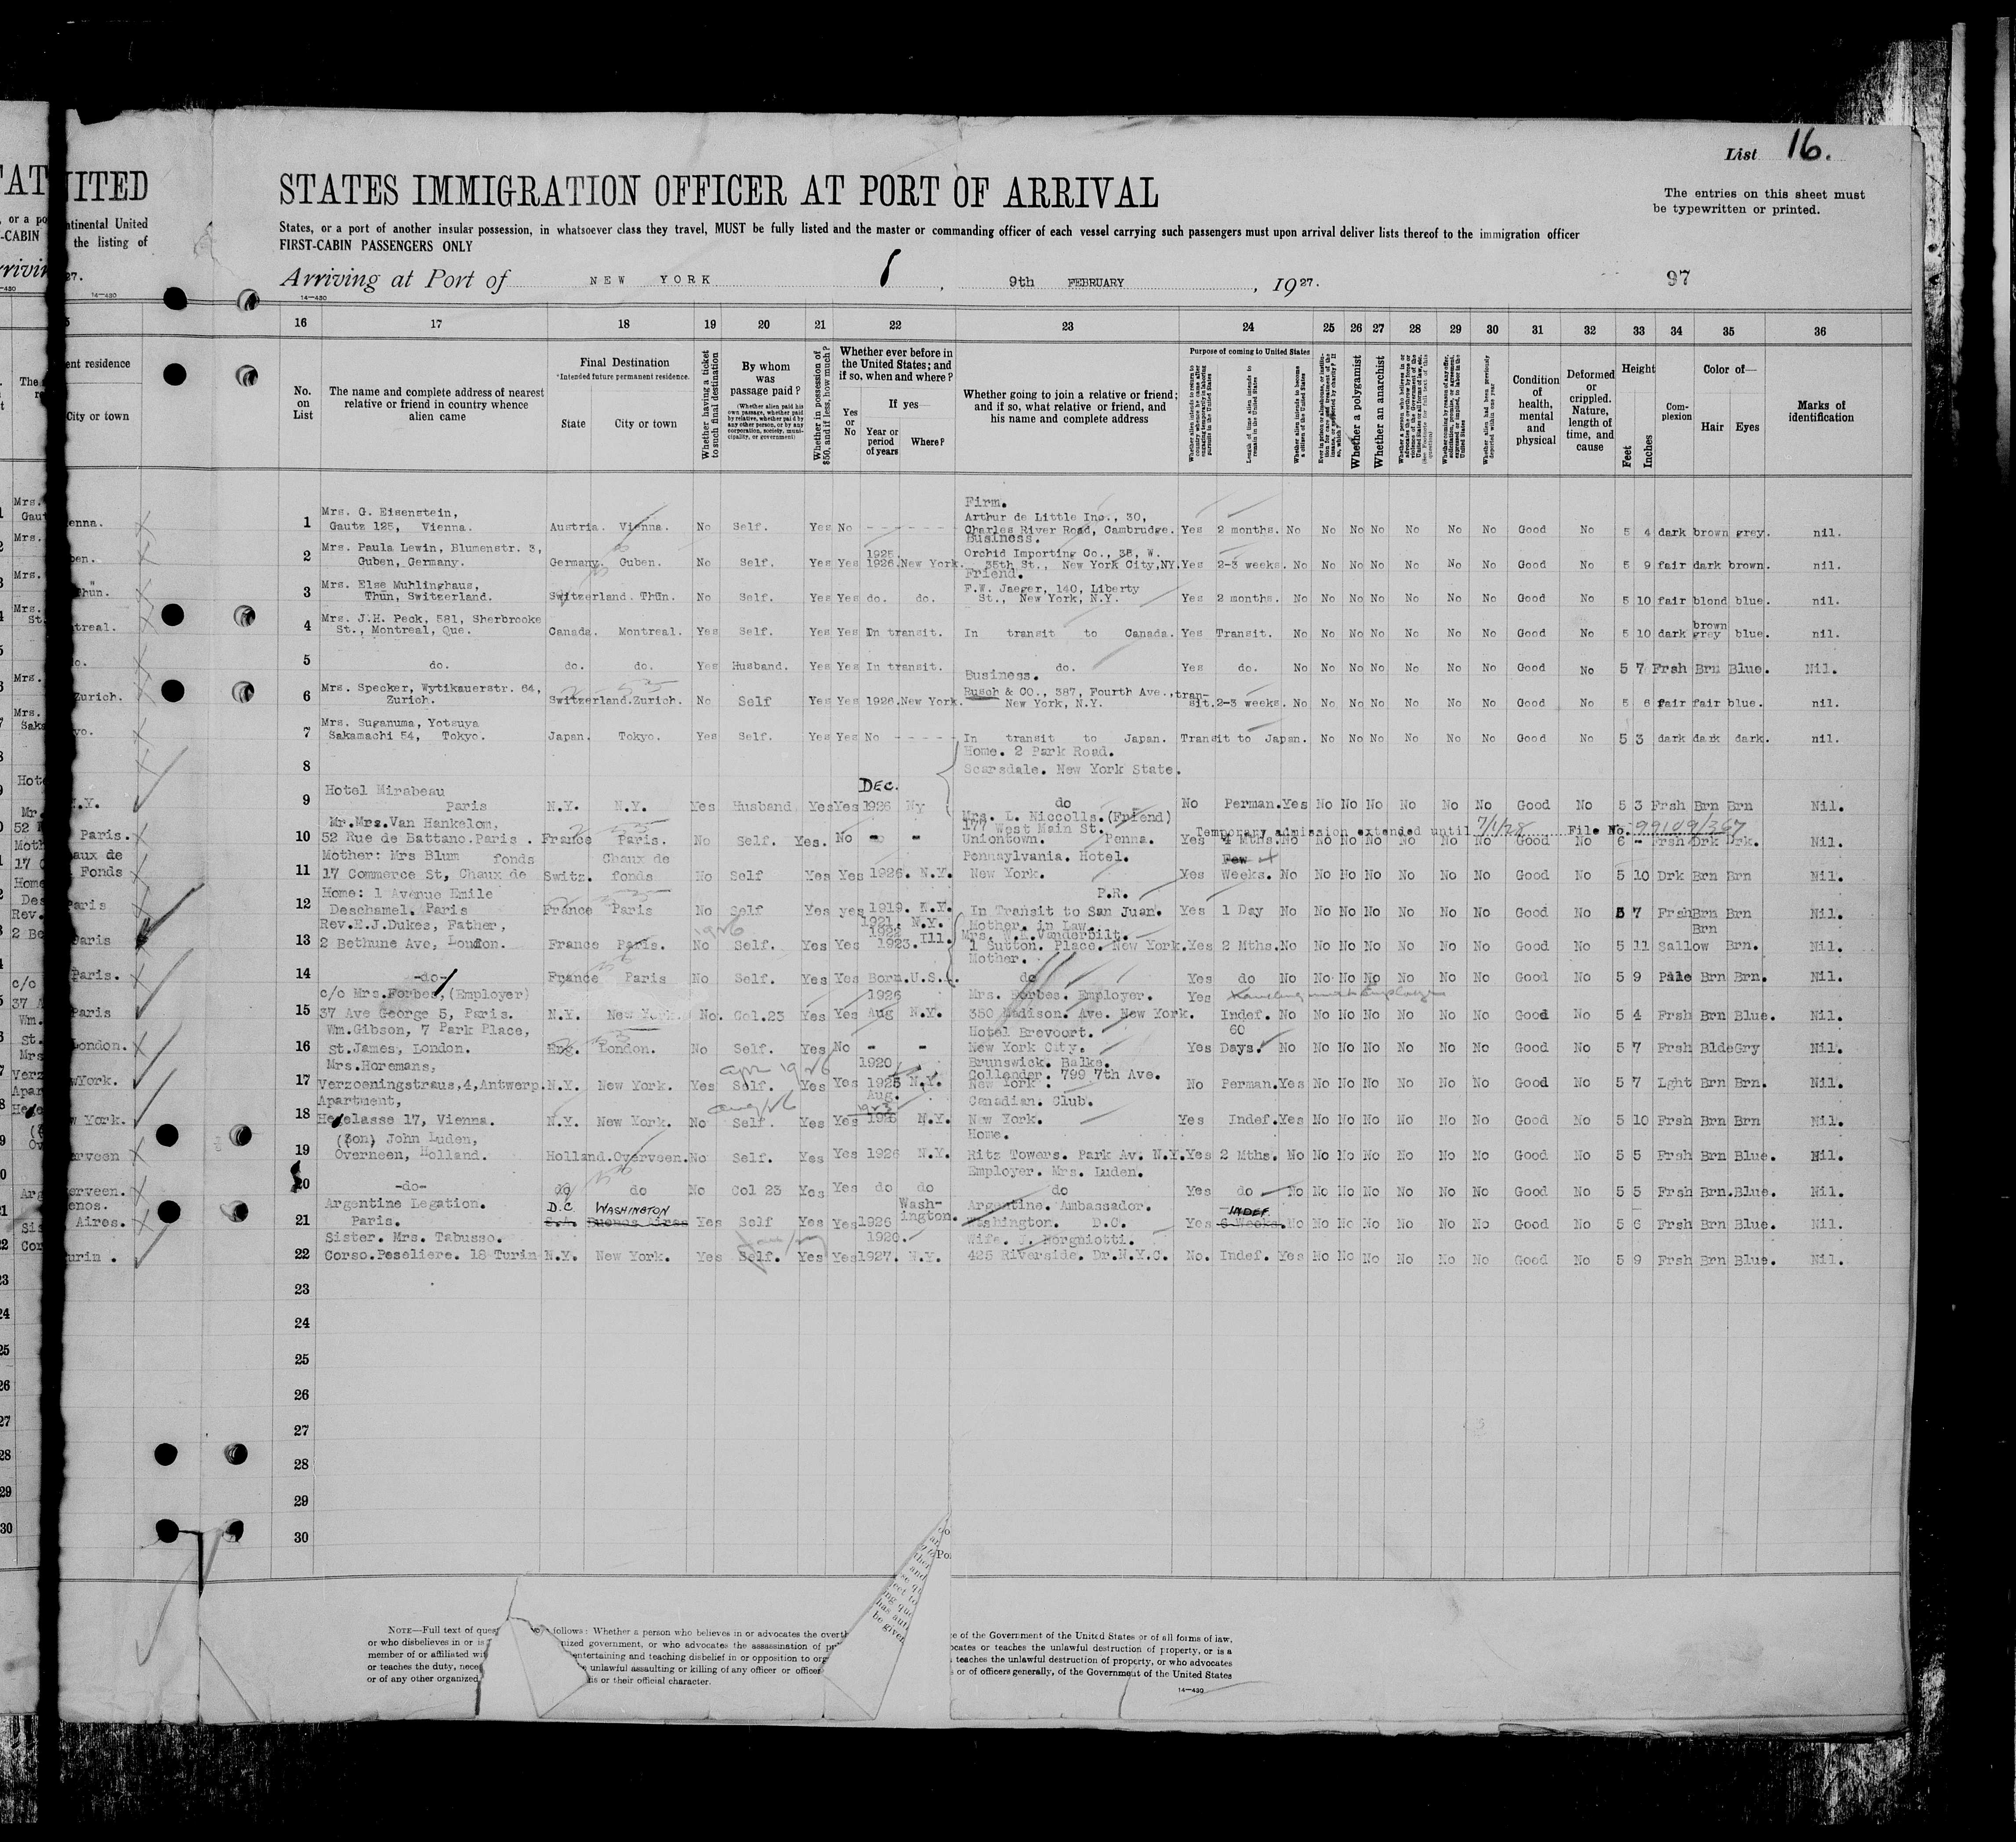 List 16.
UNITED STATES IMMIGRATION OFFICER AT PORT OF ARRIVAL
The entries on this sheet must
be typewritten or printed.
States, or a port of another insular possession, in whatsoever class they travel, MUST be fully listed and the master or commanding officer of each vessel carrying such passengers must upon arrival deliver lists thereof to the immigration officer
FIRST-CABIN PASSENGERS ONLY
Arriving at Port of NEW YORK, 9th FEBRUARY, 1927.
97
14—430
16 17 18 19 20 21 22 23 24 25 26 27 28 29 30 31 32 33 34 35 36
No. on List
The name and complete address of nearest relative or friend in country whence alien came
Final Destination
*Intended future permanent residence.
State
City or town
Whether having a ticket to such final destination
By whom was passage paid?
(Whether alien paid his own passage, whether paid by relative, whether paid by any other person, or by any corporation, society, municipality, or government)
Whether in possession of $50, and if less, how much?
Whether ever before in the United States; and if so, when and where?
Yes or No
If yes—
Year or period of years
Where?
Whether going to join a relative or friend; and if so, what relative or friend, and his name and complete address
Purpose of coming to United States
Length of time alien intends to remain in the United States
Whether alien intends to become a citizen of the United States
Whether a polygamist
Whether an anarchist
Condition of health, mental and physical
Deformed or crippled. Nature, length of time, and cause
Height
Feet
Inches
Complexion
Color of—
Hair
Eyes
Marks of identification
1 Mrs. G. Eisenstein, Gautz 125, Vienna. Austria. Vienna. No Self. Yes No - - - - Firm. Arthur de Little Inc., 30, Charles River Road, Cambrudge. Yes 2 months. No No No No No No No Good No 5 4 dark brown grey. nil.
2 Mrs. Paula Lewin, Blumenstr. 3, Guben, Germany. Germany. Guben. No Self. Yes Yes 1925. 1926. New York. Business. Orchid Importing Co., 35, W. 35th St., New York City, NY. Yes 2-3 weeks. No No No No No No No Good No 5 9 fair dark brown. nil.
3 Mrs. Else Muhlinghaus, Thün, Switzerland. Switzerland. Thün. No Self. Yes Yes do. do. Friend. F.W. Jaeger, 140, Liberty St., New York, N.Y. Yes 2 months. No No No No No No No Good No 5 10 fair blond blue. nil.
4 Mrs. J.H. Peck, 581, Sherbrooke St., Montreal, Que. Canada. Montreal. Yes Self. Yes Yes In transit. In transit to Canada. Yes Transit. No No No No No No No Good No 5 10 dark brown grey blue. nil.
5 do. do. do. Yes Husband. Yes Yes In transit. do. Yes do. No No No No No No No Good No 5 7 Frsh Brn Blue. Nil.
6 Mrs. Specker, Wytikauerstr. 64, Zurich. Switzerland. Zurich. No Self Yes Yes 1926. New York. Business. Busch & CO., 387, Fourth Ave., New York, N.Y. transit. 2-3 weeks. No No No No No No No Good No 5 6 fair fair blue. nil.
7 Mrs. Suganuma, Yotsuya Sakamachi 54, Tokyo. Japan. Tokyo. Yes Self. Yes Yes No - - - - In transit to Japan. Transit to Japan. No No No No No No Good No 5 3 dark dark dark. nil.
8 Home. 2 Park Road. Scarsdale. New York State.
9 Hotel Mirabeau Paris N.Y. N.Y. Yes Husband Yes Yes DEC. 1926 Ny do No Perman. Yes No No No No No No Good No 5 3 Frsh Brn Brn Nil.
Temporary admission extended until 7/1/28 File No. 99109/367
10 Mr.Mrs.Van Hankelom, 52 Rue de Battano.Paris. France Paris. No Self. Yes. No - - Mrs. L. Niccolls.(Friend) 177 West Main St. Uniontown. Penna. Yes 4 Mths. No No No No No No No Good No 6 - Frsh Drk Drk. Nil.
11 Mother: Mrs Blum fonds 17 Commerce St, Chaux de Switz. Chaux de fonds No Self Yes Yes 1926. N.Y. Pennsylvania. Hotel. New York. Yes Few Weeks. No No No No No No No Good No 5 10 Drk Brn Brn Nil.
12 Home: 1 Avenue Emile Deschamel. Paris France Paris No Self Yes yes 1919. N.Y. In Transit to San Juan. P.R. Yes 1 Day No No No No No No No Good No 5 7 Frsh Brn Brn Nil.
13 Rev.E.J.Dukes, Father, 2 Bethune Ave, London. France Paris. No Self. Yes Yes 1921. N.Y. 1922 1923. Ill. Mother. in Law. Mrs. W.K.Vanderbilt. 1 Sutton. Place. New York. Yes 2 Mths. No No No No No No No Good No 5 11 Sallow Brn Brn. Nil.
14 -do- France Paris No Self. Yes Yes Born.U.S. Mother. do Yes do No No No No No No No Good No 5 9 Pale Brn Brn. Nil.
15 c/o Mrs.Forbes,(Employer) 37 Ave George 5, Paris. N.Y. New York. No. Col.23 Yes Yes 1926 Aug N.Y. Mrs. Forbes. Employer. 350 Madison. Ave. New York. Yes Indef. No No No No No No No Good No 5 4 Frsh Brn Blue. Nil.
16 Wm.Gibson, 7 Park Place, St.James, London. Eng. London. No Self. Yes No - - Hotel Brevoort. New York City. Yes 60 Days. No No No No No No No Good No 5 7 Frsh Blde Gry Nil.
17 Mrs.Horemans, Verzoeningstraus,4,Antwerp. N.Y. New York. Yes Self. Yes Yes 1920 1925 N.Y. Brunswick. Balke. Collender. 799 7th Ave. New York. No Perman. Yes No No No No No No Good No 5 7 Lght Brn Brn. Nil.
18 Apartment, Hegelasse 17, Vienna. N.Y. New York. No Self. Yes Yes Aug. 1926 N.Y. Canadian. Club. New York. Yes Indef. Yes No No No No No No Good No 5 10 Frsh Brn Brn Nil.
19 (Son) John Luden, Overneen, Holland. Holland. Overveen. No Self. Yes Yes 1926 N.Y. Home. Ritz Towers. Park Av. N.Y. Yes 2 Mths. No No No No No No No Good No 5 5 Frsh Brn Blue. Nil.
20 -do- do do No Col 23 Yes Yes do do Employer. Mrs. Luden. do Yes do No No No No No No No Good No 5 5 Frsh Brn. Blue. Nil.
21 Argentine Legation. Paris. D.C. WASHINGTON Buenos Aires Yes Self Yes Yes 1926 Washington. Argentine. Ambassador. Washington. D.C. Yes INDEF 6 Weeks. No No No No No No No Good No 5 6 Frsh Brn Blue. Nil.
22 Sister. Mrs. Tabusso. Corso.Peseliere. 18 Turin N.Y. New York. Yes Self. Yes Yes 1920. 1927. N.Y. Wife. J. Morgniotti. 425 Riverside. Dr.N.Y.C. No. Indef. Yes No No No No No No Good No 5 9 Frsh Brn Blue. Nil.
23
24
25
26
27
28
29
30
NOTE—Full text of ques follows: Whether a person who believes in or advocates the overth e of the Government of the United States or of all forms of law,
or who disbelieves in or is nized government, or who advocates the assassination of pu ocates or teaches the unlawful destruction of property, or is a
member of or affiliated wit entertaining and teaching disbelief in or opposition to org teaches the unlawful destruction of property, or who advocates
or teaches the duty, nece unlawful assaulting or killing of any officer or officer s or of officers generally, of the Government of the United States
or of any other organized is or their official character.
14—430